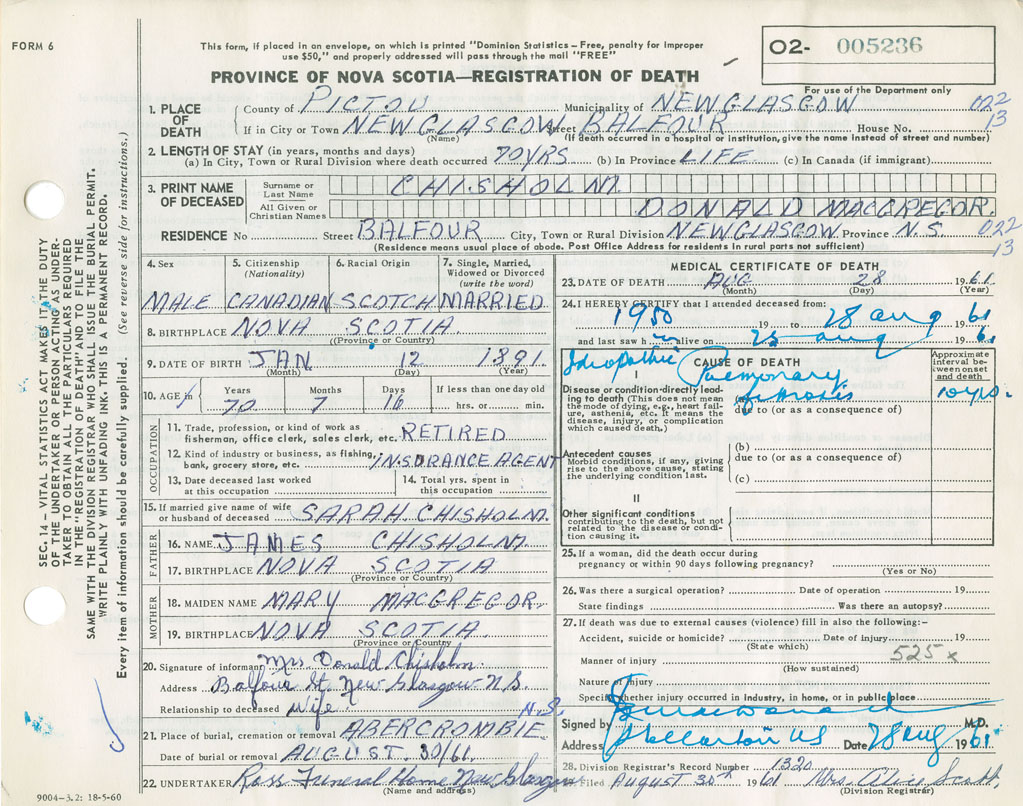 FORM 6
This form, if placed in an envelope, on which is printed "Dominion Statistics – Free, penalty for improper
use $50," and properly addressed will pass through the mail "FREE"
PROVINCE OF NOVA SCOTIA—REGISTRATION OF DEATH
O2- 005236
For use of the Department only
1. PLACE OF DEATH
County of PICTOU Municipality of NEW GLASGOW 022
If in City or Town NEW GLASGOW Street BALFOUR House No. 13
(Name) (If death occurred in a hospital or institution, give the name instead of street and number)
2. LENGTH OF STAY (in years, months and days)
(a) In City, Town or Rural Division where death occurred 70 YRS (b) In Province LIFE (c) In Canada (if immigrant)
3. PRINT NAME OF DECEASED
Surname or Last Name CHISHOLM
All Given or Christian Names DONALD MACGREGOR.
RESIDENCE No Street BALFOUR City, Town or Rural Division NEW GLASGOW Province N.S. 022
(Residence means usual place of abode. Post Office Address for residents in rural parts not sufficient) 13
4. Sex 5. Citizenship (Nationality) 6. Racial Origin 7. Single, Married, Widowed or Divorced (write the word)
MALE CANADIAN SCOTCH MARRIED
8. BIRTHPLACE NOVA SCOTIA
(Province or Country)
9. DATE OF BIRTH JAN 12 1891
(Month) (Day) (Year)
10. AGE in Years Months Days If less than one day old
70 7 16 hrs. or min.
OCCUPATION
11. Trade, profession, or kind of work as
fisherman, office clerk, sales clerk, etc. RETIRED
12. Kind of industry or business, as fishing,
bank, grocery store, etc. INSURANCE AGENT
13. Date deceased last worked
at this occupation
14. Total yrs. spent in
this occupation
15. If married give name of wife
or husband of deceased SARAH CHISHOLM.
FATHER
16. NAME JAMES CHISHOLM.
17. BIRTHPLACE NOVA SCOTIA
(Province or Country)
MOTHER
18. MAIDEN NAME MARY MACGREGOR.
19. BIRTHPLACE NOVA SCOTIA
(Province or Country)
20. Signature of informant Mrs Donald Chisholm.
Address Balfour St. New Glasgow N.S.
Relationship to deceased Wife. N.S.
21. Place of burial, cremation or removal ABERCROMBIE
Date of burial or removal AUGUST 30/61.
22. UNDERTAKER Ross Funeral Home New Glasgow
(Name and address)
MEDICAL CERTIFICATE OF DEATH
23. DATE OF DEATH AUG 28 1961
(Month) (Day) (Year)
24. I HEREBY CERTIFY that I attended deceased from:
1950 19 to 28 aug 1961
and last saw him alive on 25 aug 1961
Idiopathic CAUSE OF DEATH
Approximate interval between onset and death
I
Pulmonary
fibrosis 10 yrs.
Disease or condition directly leading to death (This does not mean
the mode of dying, e.g., heart failure, asthenia, etc. It means the
disease, injury, or complication
which caused death.)
due to (or as a consequence of)
Antecedent causes
Morbid conditions, if any, giving
rise to the above cause, stating
the underlying condition last.
(b)
due to (or as a consequence of)
(c)
II
Other significant conditions
contributing to the death, but not
related to the disease or condition causing it.
25. If a woman, did the death occur during
pregnancy or within 90 days following pregnancy?
(Yes or No)
26. Was there a surgical operation? Date of operation 19
State findings Was there an autopsy?
27. If death was due to external causes (violence) fill in also the following:–
Accident, suicide or homicide? Date of injury 19
(State which)
525 x
Manner of injury
(How sustained)
Nature of injury
Specify whether injury occurred in industry, in home, or in public place
Signed by M.D.
Address Stellarton NS Date 28 aug 1961
28. Division Registrar's Record Number 1320
29. Filed AUGUST 30th 1961 Mrs. Alice Scott.
(Division Registrar)
SEC. 14 – VITAL STATISTICS ACT MAKES IT THE DUTY
OF THE UNDERTAKER OR PERSON ACTING AS UNDER-
TAKER TO OBTAIN ALL THE PARTICULARS REQUIRED
IN THE "REGISTRATION OF DEATH" AND TO FILE THE
SAME WITH THE DIVISION REGISTRAR WHO SHALL ISSUE THE BURIAL PERMIT.
WRITE PLAINLY WITH UNFADING INK. THIS IS A PERMANENT RECORD.
Every item of information should be carefully supplied. (See reverse side for instructions.)
9004–3.2: 18-5-60